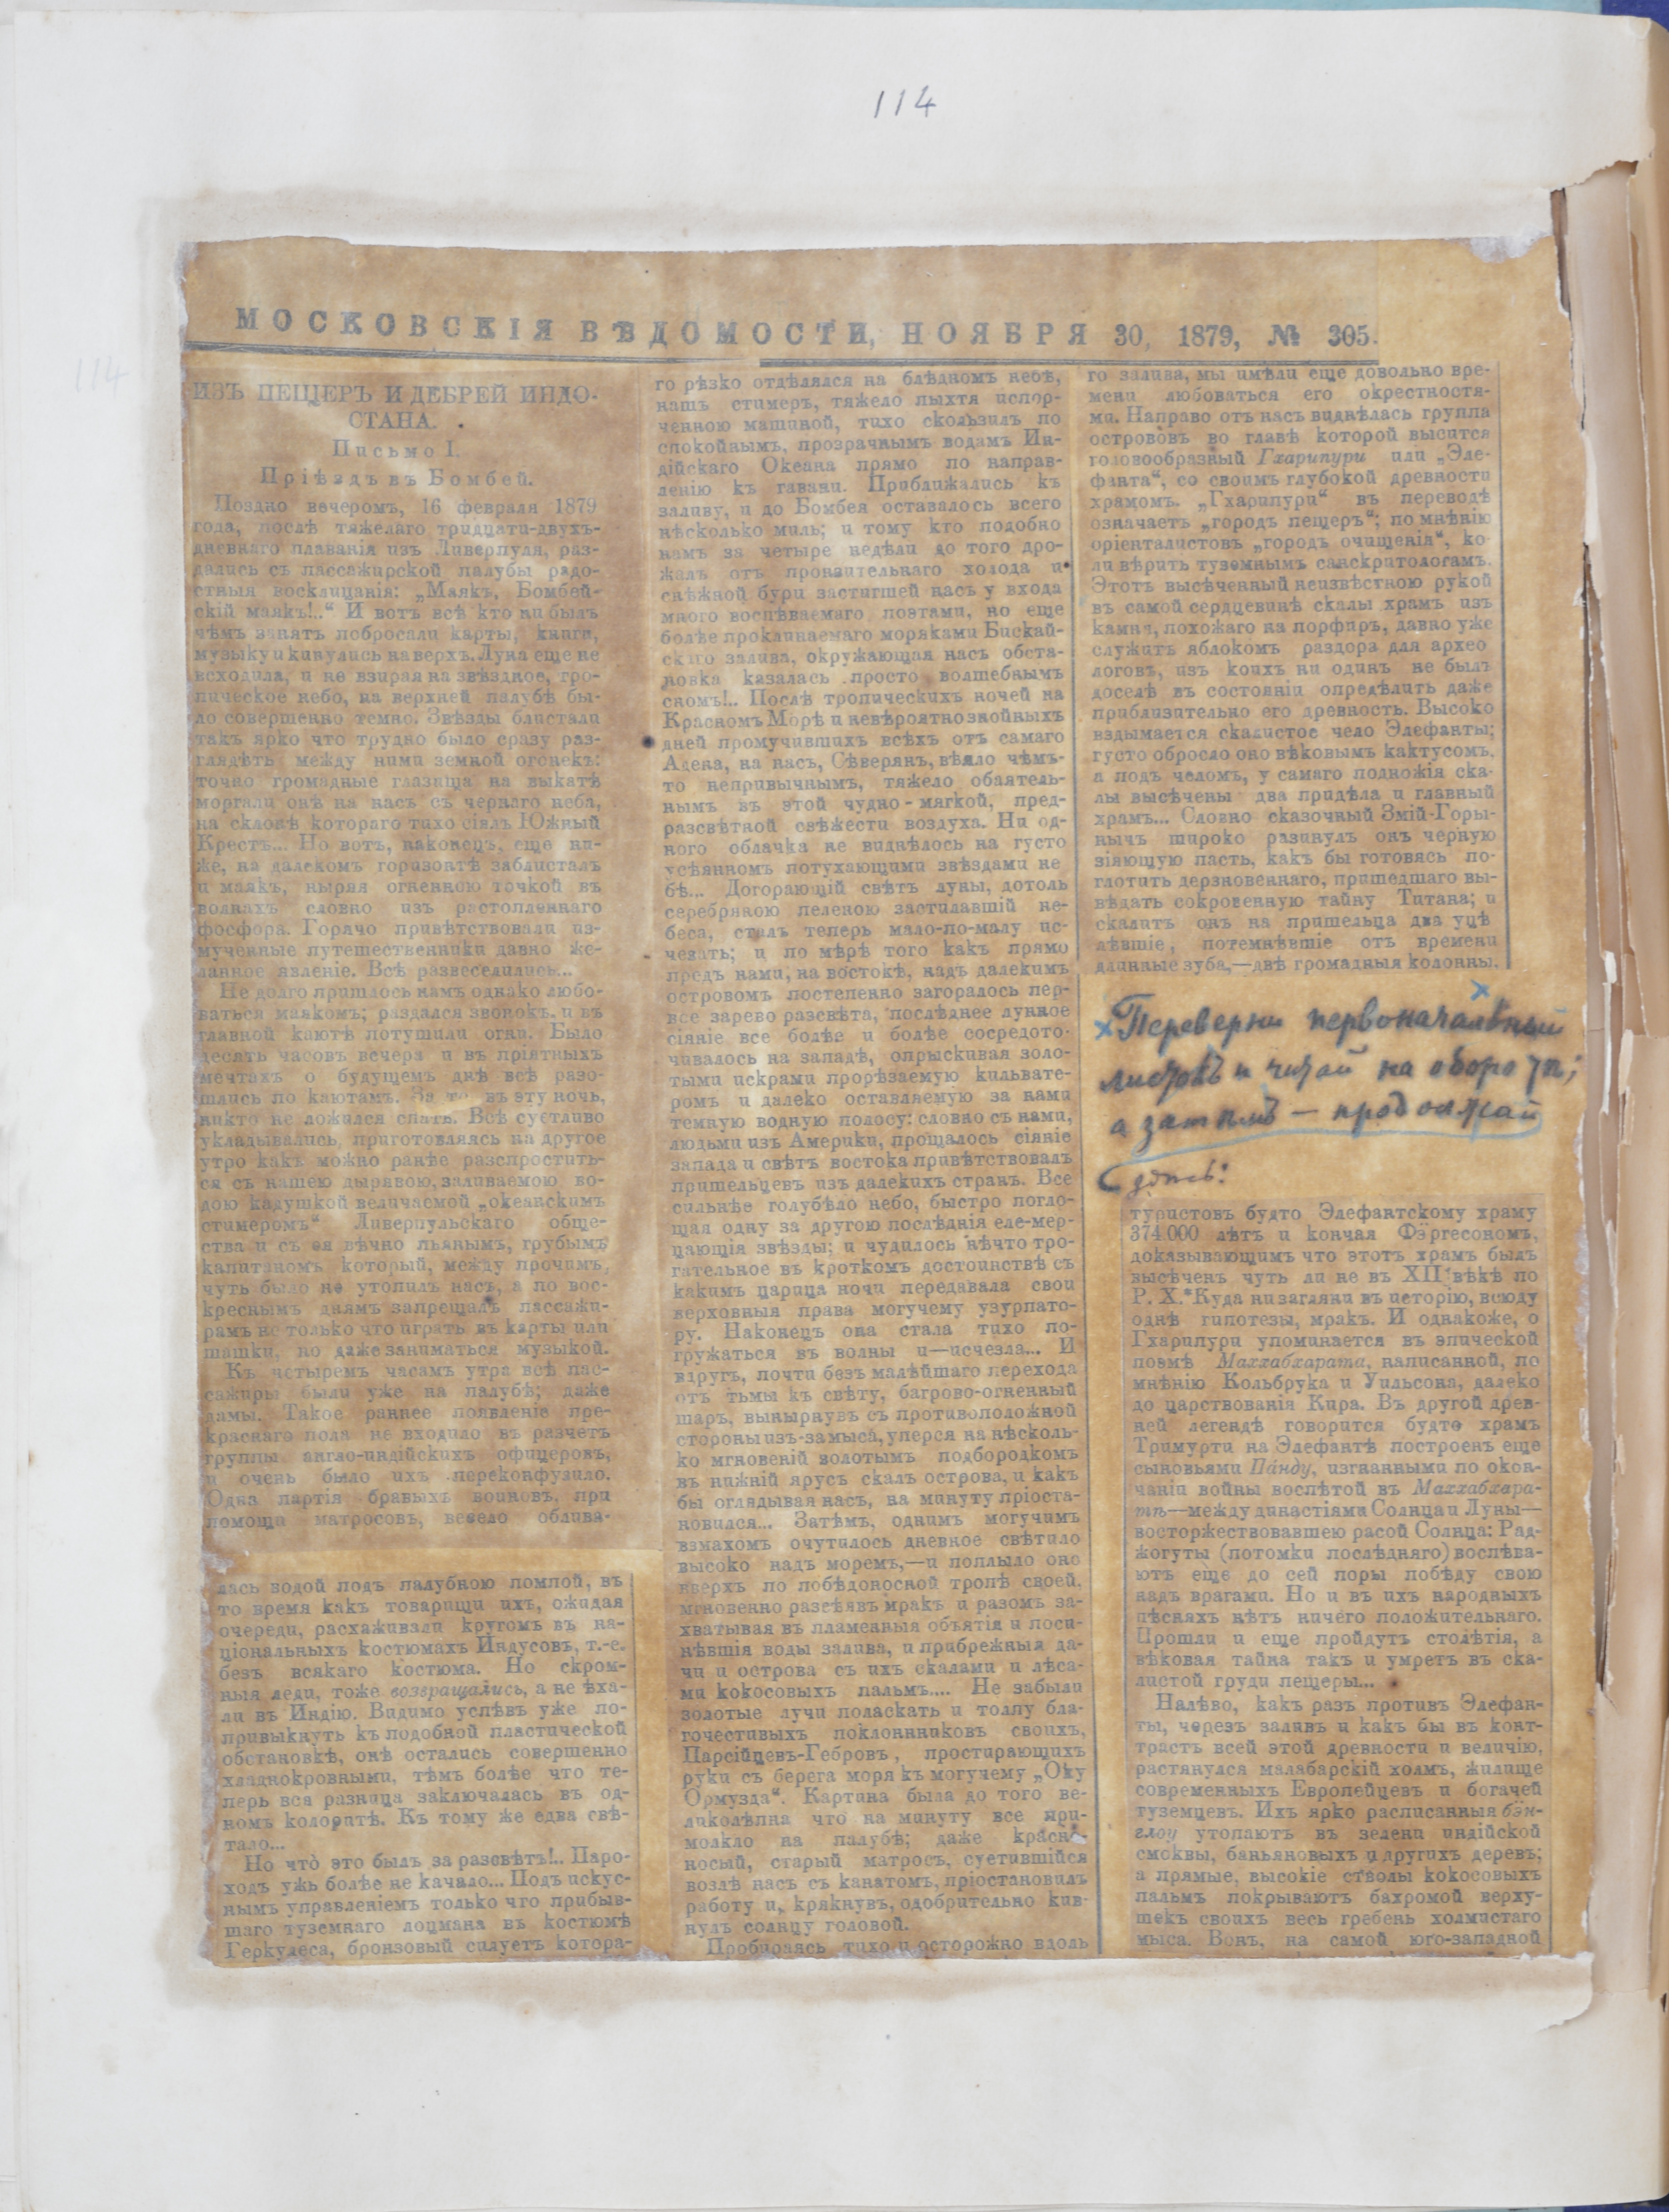 114
114
МОСКОВСКІЯ ВѢДОМОСТИ, НОЯБРЯ 30, 1879, № 305.
ИЗЪ ПЕЩЕРЪ И ДЕБРЕЙ ИНДО-
СТАНА.
Письмо I.
Пріѣздъ въ Бомбей.
Поздно вечеромъ, 16 февраля 1879
года, послѣ тяжелаго тридцати-двухъ-
дневнаго плаванія изъ Ливерпуля, раз-
дались съ пассажирской палубы радо-
стныя восклицанія: „Маякъ, Бомбей-
скій маякъ!..“ И вотъ всѣ кто ни былъ
чѣмъ занятъ побросали карты, книги,
музыку и кинулись наверхъ. Луна еще не
всходила, и не взирая на звѣздное, тро-
пическое небо, на верхней палубѣ бы-
ло совершенно темно. Звѣзды блистали
такъ ярко что трудно было сразу раз-
глядѣть между ними земной огонекъ:
точно громадные глазища на выкатѣ
моргали онѣ на насъ съ чернаго неба,
на склонѣ котораго тихо сіялъ Южный
Крестъ... Но вотъ, наконецъ, еще ни-
же, на далекомъ горизонтѣ заблисталъ
и маякъ, ныряя огненною точкой въ
волнахъ словно изъ растопленнаго
фосфора. Горячо привѣтствовали из-
мученные путешественники давно же-
ланное явленіе. Всѣ развеселились...
Не долго пришлось намъ однако любо-
ваться маякомъ; раздался звонокъ, и въ
главной каютѣ потушили огни. Было
десять часовъ вечера и въ пріятныхъ
мечтахъ о будущемъ днѣ всѣ разо-
шлись по каютамъ. За то въ эту ночь,
никто не ложился спать. Всѣ суетливо
укладывались, приготовляясь на другое
утро какъ можно ранѣе распростить-
ся съ нашею дырявою, заливаемою во-
дою кадушкой величаемой „океанскимъ
стимеромъ“ Ливерпульскаго обще-
ства и съ ея вѣчно пьянымъ, грубымъ
капитаномъ который, между прочимъ,
чуть было не утопилъ насъ, а по вос-
креснымъ днямъ запрещалъ пассажи-
рамъ не только что играть въ карты или
шашки, но даже заниматься музыкой.
Къ четыремъ часамъ утра всѣ пас-
сажиры были уже на палубѣ; даже
дамы. Такое раннее появленіе пре-
краснаго пола не входило въ разчетъ
группы англо-индійскихъ офицеровъ,
и очень было ихъ переконфузило.
Одна партія бравыхъ воиновъ, при
помощи матросовъ, весело облива-
лась водой подъ палубною помпой, въ
то время какъ товарищи ихъ, ожидая
очереди, расхаживали кругомъ въ на-
ціональныхъ костюмахъ Индусовъ, т.-е.
безъ всякаго костюма. Но скром-
ныя леди, тоже возвращались, а не ѣха-
ли въ Индію. Видимо успѣвъ уже по-
привыкнуть къ подобной пластической
обстановкѣ, онѣ остались совершенно
хладнокровными, тѣмъ болѣе что те-
перь вся разница заключалась въ од-
номъ колоритѣ. Къ тому же едва свѣ-
тало...
Но что̀ это былъ за разсвѣтъ!.. Паро-
ходъ ужь болѣе не качало... Подъ искус-
нымъ управленіемъ только что прибыв-
шаго туземнаго лоцмана въ костюмѣ
Геркулеса, бронзовый силуетъ котора-
го рѣзко отдѣлялся на блѣдномъ небѣ,
нашъ стимеръ, тяжело пыхтя испор-
ченною машиной, тихо скользилъ по
спокойнымъ, прозрачнымъ водамъ Ин-
дійскаго Океана прямо по направ-
ленію къ гавани. Приближались къ
заливу, и до Бомбея оставалось всего
нѣсколько миль; и тому кто подобно
намъ за четыре недѣли до того дро-
жалъ отъ пронзительнаго холода и
снѣжной бури застигшей насъ у входа
много воспѣваемаго поэтами, но еще
болѣе проклинаемаго моряками Бискай-
скаго залива, окружающая насъ обста-
новка казалась просто волшебнымъ
сномъ!.. Послѣ тропическихъ ночей на
Красномъ Морѣ и невѣроятно знойныхъ
дней промучившихъ всѣхъ отъ самаго
Адена, на насъ, Сѣверянъ, вѣяло чѣмъ-
то непривычнымъ, тяжело обаятель-
нымъ въ этой чудно-мягкой, пред-
разсвѣтной свѣжести воздуха. Ни од-
ного облачка не виднѣлось на густо
усѣянномъ потухающими звѣздами не
бѣ... Догорающій свѣтъ луны, дотоль
серебряною пеленою застилавшій не-
беса, сталъ теперь мало-по-малу ис-
чезать; и по мѣрѣ того какъ прямо
предъ нами, на востокѣ, надъ далекимъ
островомъ постепенно загоралось пер-
вое зарево разсвѣта, послѣднее лунное
сіяніе все болѣе и болѣе сосредото-
чивалось на западѣ, опрыскивая золо-
тыми искрами прорѣзаемую кильвате-
ромъ и далеко оставляемую за нами
темную водную полосу: словно съ нами,
людьми изъ Америки, прощалось сіяніе
запада и свѣтъ востока привѣтствовалъ
пришельцевъ изъ далекихъ странъ. Все
сильнѣе голубѣло небо, быстро погло-
щая одну за другою послѣднія еле-мер-
цающія звѣзды; и чудилось нѣчто тро-
гательное въ кроткомъ достоинствѣ съ
какимъ царица ночи передавала свои
верховныя права могучему узурпато-
ру. Наконецъ она стала тихо по-
гружаться въ волны и—исчезла... И
вдругъ, почти безъ малѣйшаго перехода
отъ тьмы къ свѣту, багрово-огненный
шаръ, вынырнувъ съ противоположной
стороны изъ-за мыса, уперся на нѣсколь-
ко мгновеній золотымъ подбородкомъ
въ нижній ярусъ скалъ острова, и какъ
бы оглядывая насъ, на минуту пріоста-
новился... Затѣмъ, однимъ могучимъ
взмахомъ очутилось дневное свѣтило
высоко надъ моремъ,—и поплыло оно
вверхъ по побѣдоносной тропѣ своей,
мгновенно разсѣявъ мракъ и разомъ за-
хватывая въ пламенныя объятія и поси-
нѣвшія воды залива, и прибрежныя да-
чи и острова съ ихъ скалами и лѣса-
ми кокосовыхъ пальмъ.... Не забыли
золотые лучи поласкать и толпу бла-
гочестивыхъ поклонниковъ своихъ,
Парсійцевъ-Гебровъ, простирающихъ
руки съ берега моря къ могучему „Оку
Ормузда“. Картина была до того ве-
ликолѣпна что на минуту все при-
молкло на палубѣ; даже красно-
носый, старый матросъ, суетившійся
возлѣ насъ съ канатомъ, пріостановилъ
работу и, крякнувъ, одобрительно кив-
нулъ солнцу головой.
Пробираясь тихо и осторожно вдоль
го залива, мы имѣли еще довольно вре-
мени любоваться его окрестностя-
ми. Направо отъ насъ виднѣлась группа
острововъ во главѣ которой высится
головообразный Гхарипури или „Эле-
фанта“, со своимъ глубокой древности
храмомъ. „Гхарипури“ въ переводѣ
означаетъ „городъ пещеръ“; по мнѣнію
оріенталистовъ „городъ очищенія“, ко-
ли вѣрить туземнымъ санскритологамъ.
Этотъ высѣченный неизвѣстною рукой
въ самой сердцевинѣ скалы храмъ изъ
камня, похожаго на порфиръ, давно уже
служитъ яблокомъ раздора для архео
логовъ, изъ коихъ ни одинъ не былъ
доселѣ въ состояніи опредѣлить даже
приблизительно его древность. Высоко
вздымается скалистое чело Элефанты;
густо обросло оно вѣковымъ кактусомъ,
а подъ челомъ, у самаго подножія ска-
лы высѣчены два придѣла и главный
храмъ... Словно сказочный Змій-Горы-
нычъ широко разинулъ онъ черную
зіяющую пасть, какъ бы готовясь по-
глотить дерзновеннаго, пришедшаго вы-
вѣдать сокровенную тайну Титана; и
скалитъ онъ на пришельца два уцѣ
лѣвшіе, потемнѣвшіе отъ времени
длинные зуба,—двѣ громадныя колонны.
x
x Переверни первоначальный
листокъ и читай на оборотѣ;
а затѣмъ — продолжай
здѣсь:
туристовъ будто Элефантскому храму
374.000 лѣтъ и кончая Фэргесономъ,
доказывающимъ что этотъ храмъ былъ
высѣченъ чуть ли не въ XII вѣкѣ по
Р. Х.*Куда ни загляни въ исторію, всюду
однѣ гипотезы, мракъ. И однакоже, о
Гхарипури упоминается въ эпической
поэмѣ Маххабхарата, написанной, по
мнѣнію Кольбрука и Уильсона, далеко
до царствованія Кира. Въ другой древ-
ней легендѣ говорится будто храмъ
Тримурти на Элефантѣ построенъ еще
сыновьями Па́нду, изгнанными по окон-
чаніи войны воспѣтой въ Маххабхара-
тѣ—между династіями Солнца и Луны—
восторжествовавшею расой Солнца: Рад-
жогуты (потомки послѣдняго) воспѣва-
ютъ еще до сей поры побѣду свою
надъ врагами. Но и въ ихъ народныхъ
пѣсняхъ нѣтъ ничего положительнаго.
Прошли и еще пройдутъ столѣтія, а
вѣковая тайна такъ и умретъ въ ска-
листой груди пещеры...
Налѣво, какъ разъ противъ Элефан-
ты, черезъ заливъ и какъ бы въ конт-
трастъ всей этой древности и величію,
растянулся малабарскій холмъ, жилище
современныхъ Европейцевъ и богачей
туземцевъ. Ихъ ярко расписанныя бэн-
глоу утопаютъ въ зелени индійской
смоквы, баньяновыхъ и другихъ деревъ;
а прямые, высокіе стволы кокосовыхъ
пальмъ покрываютъ бахромой верху-
шекъ своихъ весь гребень холмистаго
мыса. Вонъ, на самой юго-западной